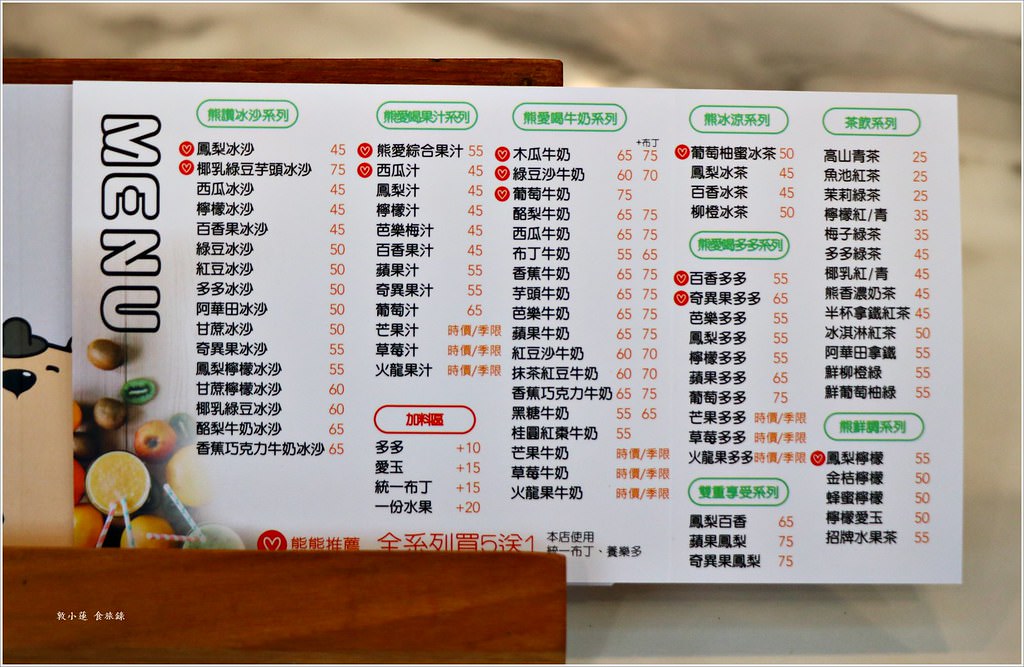 MENU
熊讚冰沙系列
鳳梨冰沙 45
椰乳綠豆芋頭冰沙 75
西瓜冰沙 45
檸檬冰沙 45
百香果冰沙 45
綠豆冰沙 50
紅豆冰沙 50
多多冰沙 50
阿華田冰沙 50
甘蔗冰沙 50
奇異果冰沙 55
鳳梨檸檬冰沙 55
甘蔗檸檬冰沙 60
椰乳綠豆冰沙 60
酪梨牛奶冰沙 65
香蕉巧克力牛奶冰沙 65
熊愛喝果汁系列
熊愛綜合果汁 55
西瓜汁 45
鳳梨汁 45
檸檬汁 45
芭樂梅汁 45
百香果汁 45
蘋果汁 55
奇異果汁 55
葡萄汁 65
芒果汁 時價/季限
草莓汁 時價/季限
火龍果汁 時價/季限
加料區
多多 +10
愛玉 +15
統一布丁 +15
一份水果 +20
熊愛喝牛奶系列
+布丁
木瓜牛奶 65 75
綠豆沙牛奶 60 70
葡萄牛奶 75
酪梨牛奶 65 75
西瓜牛奶 65 75
布丁牛奶 55 65
香蕉牛奶 65 75
芋頭牛奶 65 75
芭樂牛奶 65 75
蘋果牛奶 65 75
紅豆沙牛奶 60 70
抹茶紅豆牛奶 60 70
香蕉巧克力牛奶 65 75
黑糖牛奶 55 65
桂圓紅棗牛奶 55
芒果牛奶 時價/季限
草莓牛奶 時價/季限
火龍果牛奶 時價/季限
熊冰涼系列
葡萄柚蜜冰茶 50
鳳梨冰茶 45
百香冰茶 45
柳橙冰茶 50
熊愛喝多多系列
百香多多 55
奇異果多多 65
芭樂多多 55
鳳梨多多 55
檸檬多多 55
蘋果多多 65
葡萄多多 75
芒果多多 時價/季限
草莓多多 時價/季限
火龍果多多 時價/季限
雙重享受系列
鳳梨百香 65
蘋果鳳梨 75
奇異果鳳梨 75
茶飲系列
高山青茶 25
魚池紅茶 25
茉莉綠茶 25
檸檬紅/青 35
梅子綠茶 35
多多綠茶 45
椰乳紅/青 45
熊香濃奶茶 45
半杯拿鐵紅茶 45
冰淇淋紅茶 50
阿華田拿鐵 55
鮮柳橙綠 55
鮮葡萄柚綠 55
熊鮮調系列
鳳梨檸檬 55
金桔檸檬 50
蜂蜜檸檬 50
檸檬愛玉 50
招牌水果茶 55
熊熊推薦 全系列買5送1
本店使用
統一布丁、養樂多
敦小蓮 食旅錄